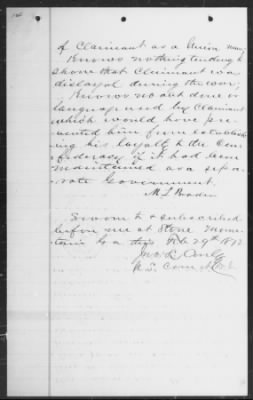 of Claimant as a Union man,
Knows nothing tending to
show that Claimant was
disloyal during the war,
Knows no act done or
language used by Claimant
which would have pre-
vented him from establish
ing his loyalty to the Con
federacy if it had been
maintained as a sepa
rate Government.
M L
Sworn to & subscribed
before me at Stone Moun-
tain Ga this Feb 29th
U.S. Com